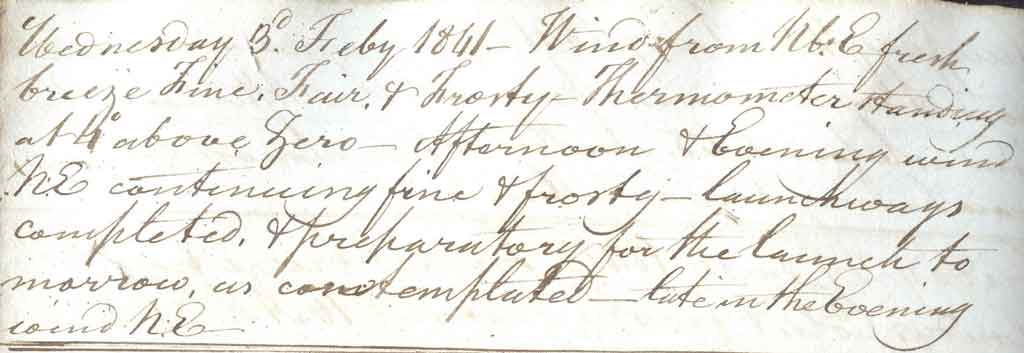 Wednesday 3d. Feby 1841 - Wind from Nb.E fresh
breeze Fine, Fair, & Frosty - Thermometer standing
at 4° above Zero - Afternoon & Evening wind
N.E continuing fine & frosty - launchways
completed, & preparatory for the launch to
morrow, as contemplated - late in the Evening
wind N.E -